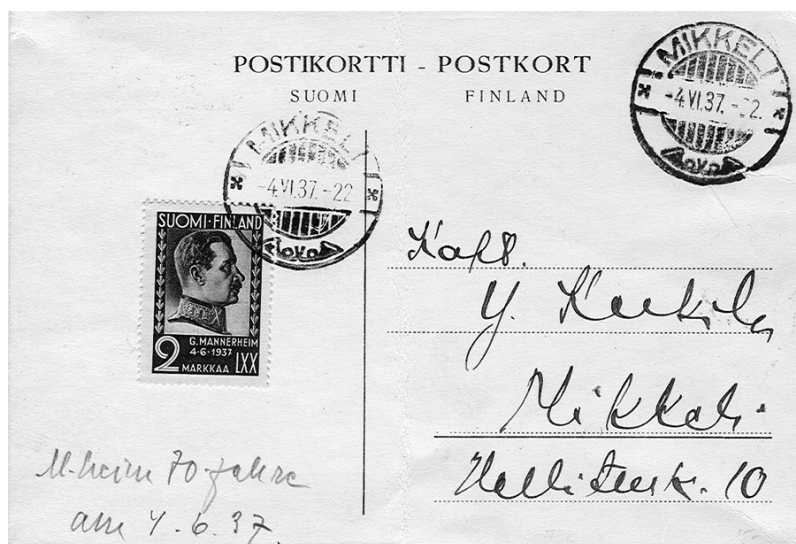 POSTIKORTTI - POSTKORT
SUOMI FINLAND
MIKKELI
-4.VI.37.-22.
MIKKELI
-4.VI.37.-22
SUOMI·FINLAND
G. MANNERHEIM
4·6·1937
2 MARKKAA LXX
Y.
Mikkeli.
10
M-heim 70 Jahre
am 4.6.37.